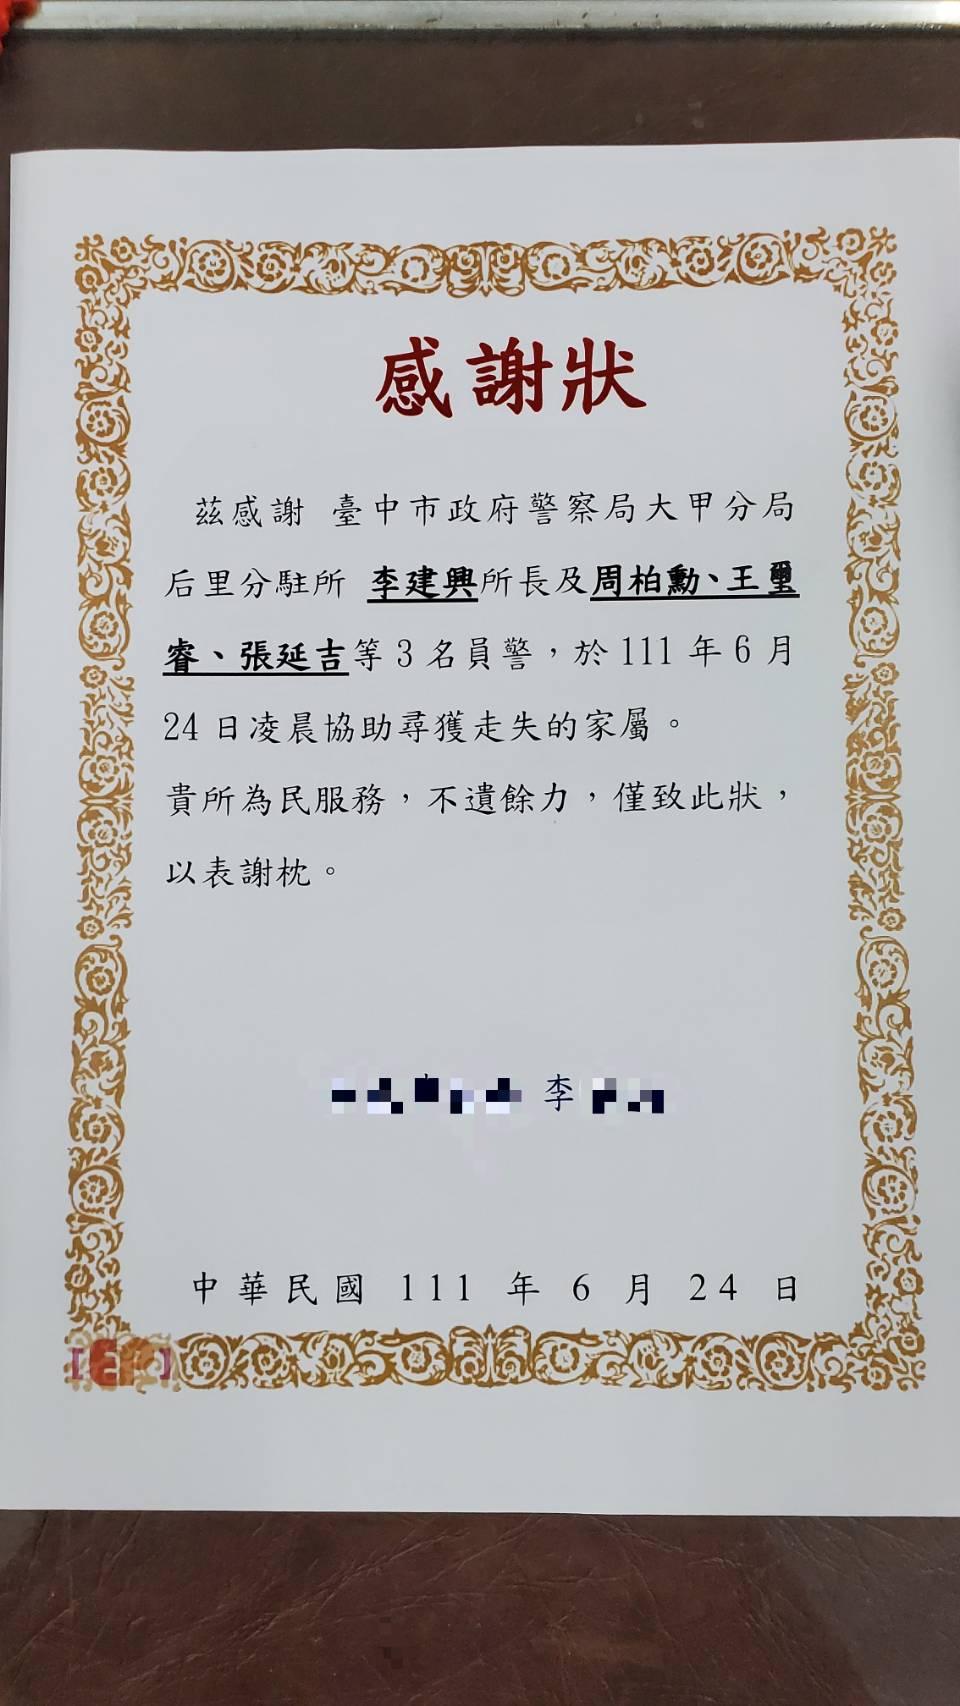 感謝狀
茲感謝 臺中市政府警察局大甲分局
后里分駐所 李建興所長及周柏勳、王璽
睿、張延吉等3名員警，於111年6月
24日凌晨協助尋獲走失的家屬。
貴所為民服務，不遺餘力，僅致此狀，
以表謝枕。
李
中華民國 111 年 6 月 24 日